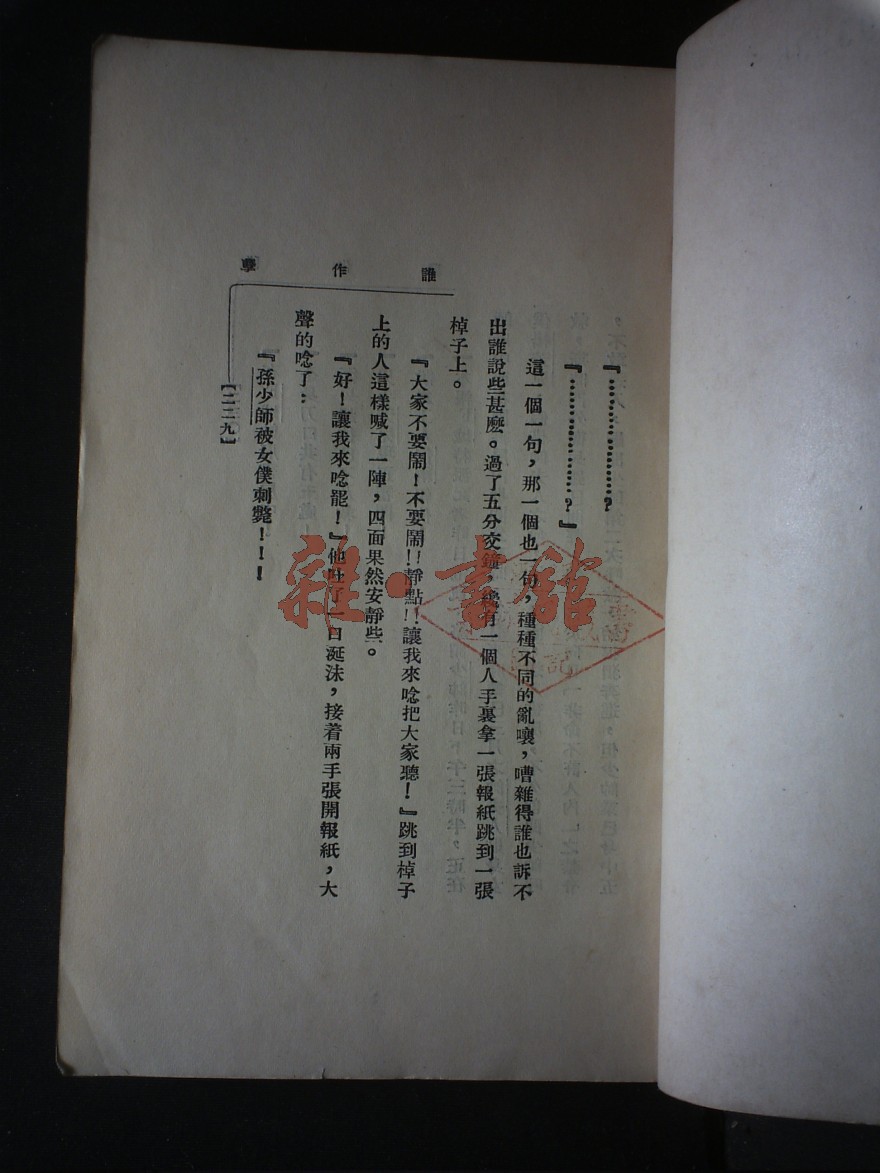 『…………………?
『…………………?』
這一個一句，那一個也一句，種種不同的亂嚷，嘈雜得誰也訴不
出誰說些甚麽。過了五分交鐘，纔有一個人手裏拿一張報紙跳到一張
棹子上。
『大家不要鬧！不要鬧!!靜點!!讓我來唸把大家聽！』跳到棹子
上的人這樣喊了一陣，四面果然安靜些。
『好！讓我來唸罷！』他吐了一口涎沫，接着兩手張開報紙，大
聲的唸了：
『孫少師被女僕刺斃！！！
誰作孽
[二二九]
雜·書館